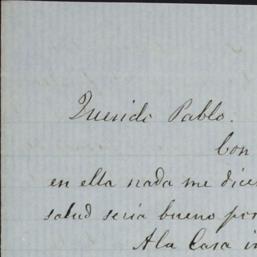 Querido Pablo.
Con
en ella nada me dices
salud seria bueno por
A la Casa in